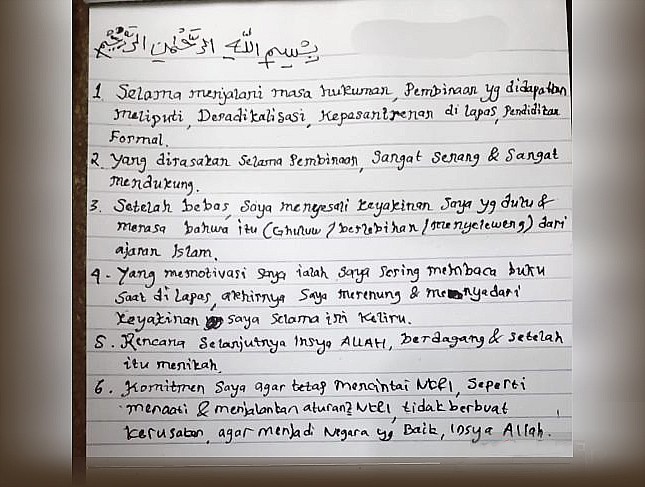 بِسْمِ اللَّهِ الرَّحْمَنِ الرَّحِيمِ
1. Selama menjalani masa hukuman, Pembinaan yg didapatkan
meliputi, Deradikalisasi, Kepasantrenan di lapas, Pendidikan
Formal.
2. Yang dirasakan Selama Pembinaan, Sangat Senang & Sangat
mendukung.
3. Setelah bebas, Saya menyesali Keyakinan Saya yg dulu &
merasa bahwa itu (Ghuluw / berlebihan / menyeleweng) dari
ajaran Islam.
4. Yang memotivasi Saya ialah Saya Sering membaca buku
Saat di lapas, akhirnya Saya merenung & menyadari
Keyakinan saya Selama ini Keliru.
5. Rencana Selanjutnya Insya ALLAH, berdagang & setelah
itu menikah.
6. Komitmen Saya agar tetap mencintai NKRI, Seperti
menaati & menjalankan aturan2 NKRI, tidak berbuat
Kerusakan, agar menjadi Negara yg Baik, Insya Allah.